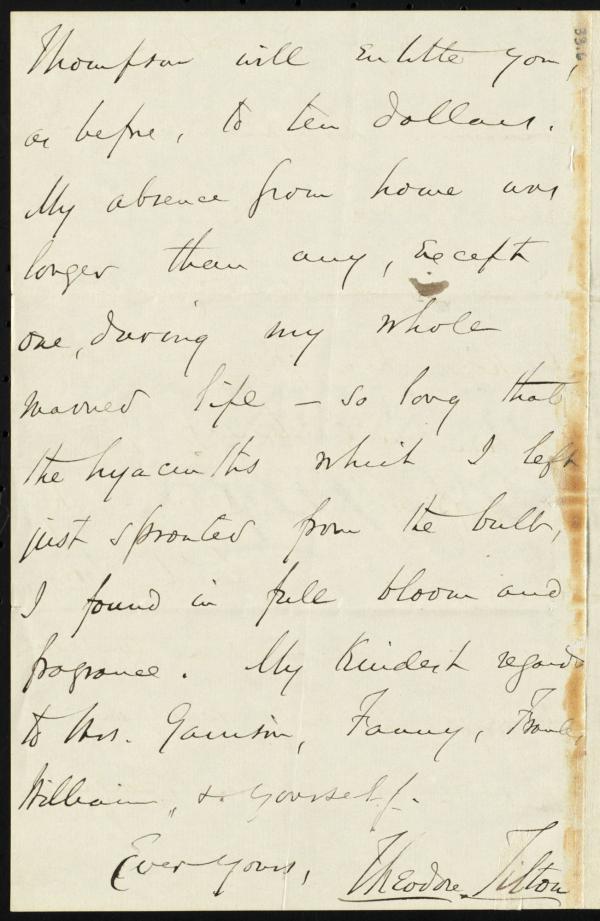 Thompson will entitle you,
as before, to ten dollars.
My absence from home was
longer than any, except
one, during my whole
married life — so long that
the hyacinths which I left
just sprouted from the bulb,
I found in full bloom and
fragrance. My kindest regards
to Mrs. Garrison, Fanny, Frank,
William, & yourself.
Ever yours, Theodore Tilton